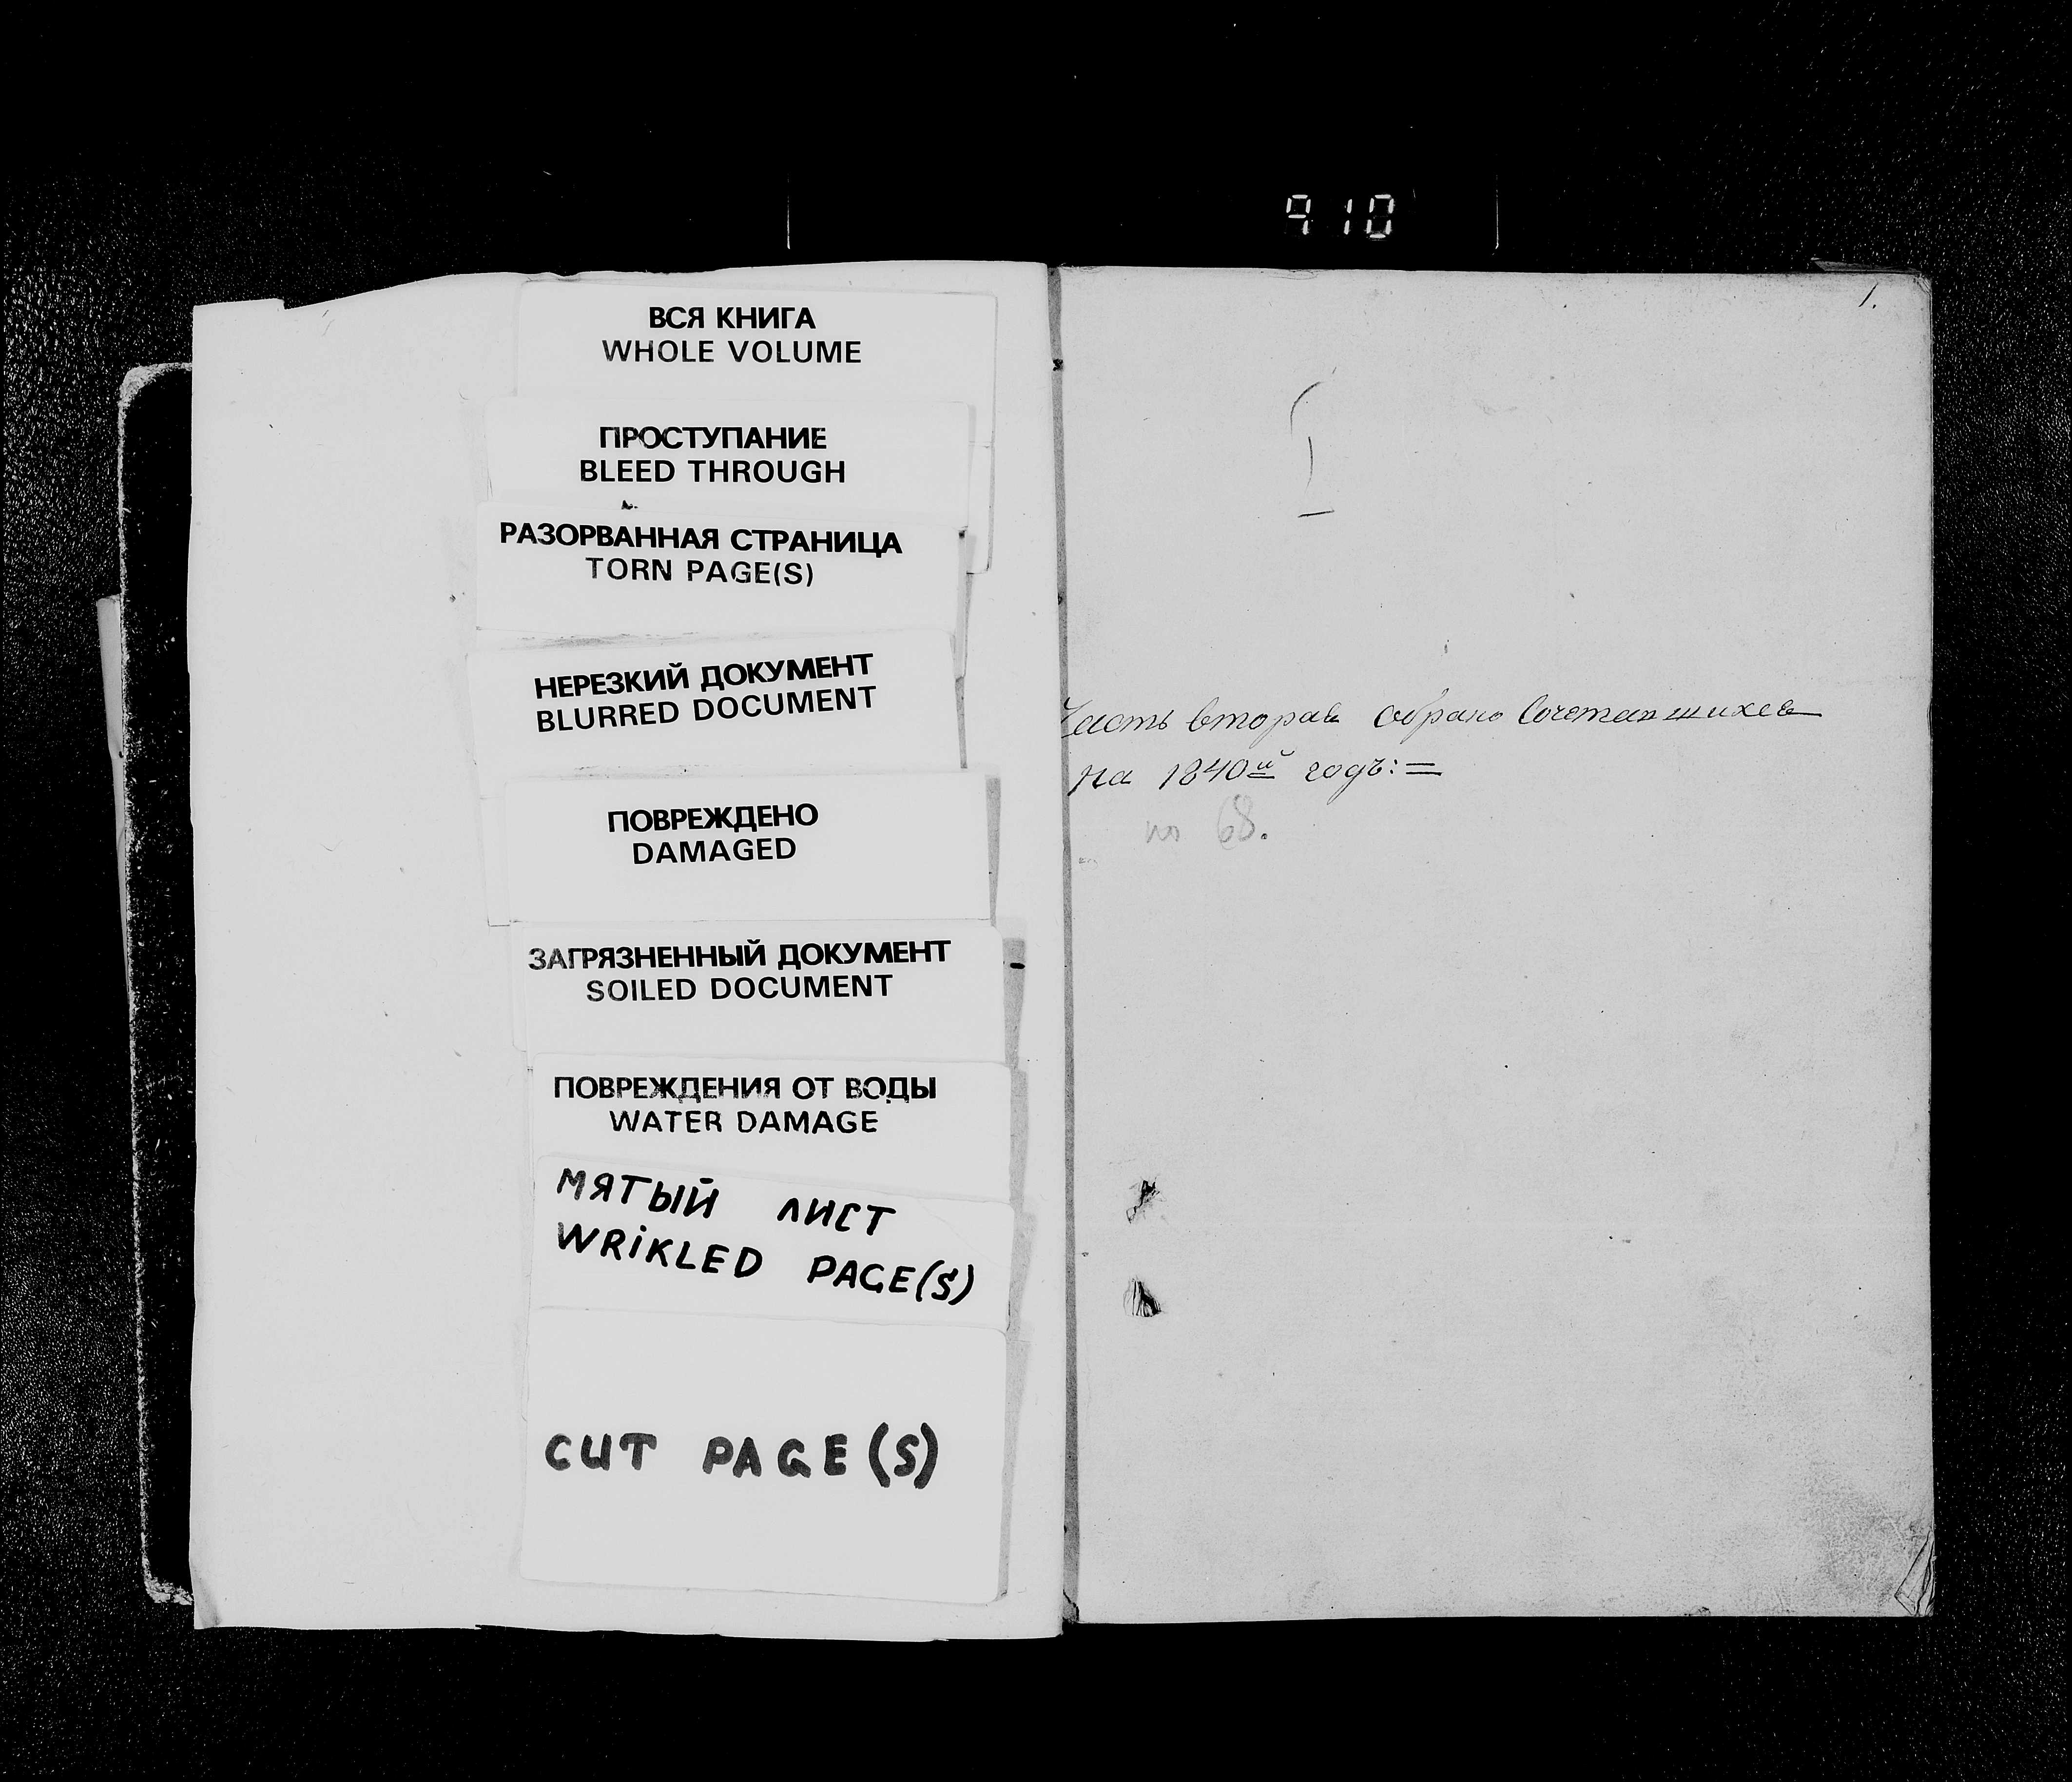 910
ВСЯ КНИГА
WHOLE VOLUME
ПРОСТУПАНИЕ
BLEED THROUGH
РАЗОРВАННАЯ СТРАНИЦА
TORN PAGE(S)
НЕРЕЗКИЙ ДОКУМЕНТ
BLURRED DOCUMENT
ПОВРЕЖДЕНО
DAMAGED
ЗАГРЯЗНЕННЫЙ ДОКУМЕНТ
SOILED DOCUMENT
ПОВРЕЖДЕНИЯ ОТ ВОДЫ
WATER DAMAGE
МЯТЫЙ ЛИСТ
WRIKLED PAGE(S)
CUT PAGE(S)
1.
Часть вторая обрако Сочетавшихся
на 1840й годъ:=
по 68.